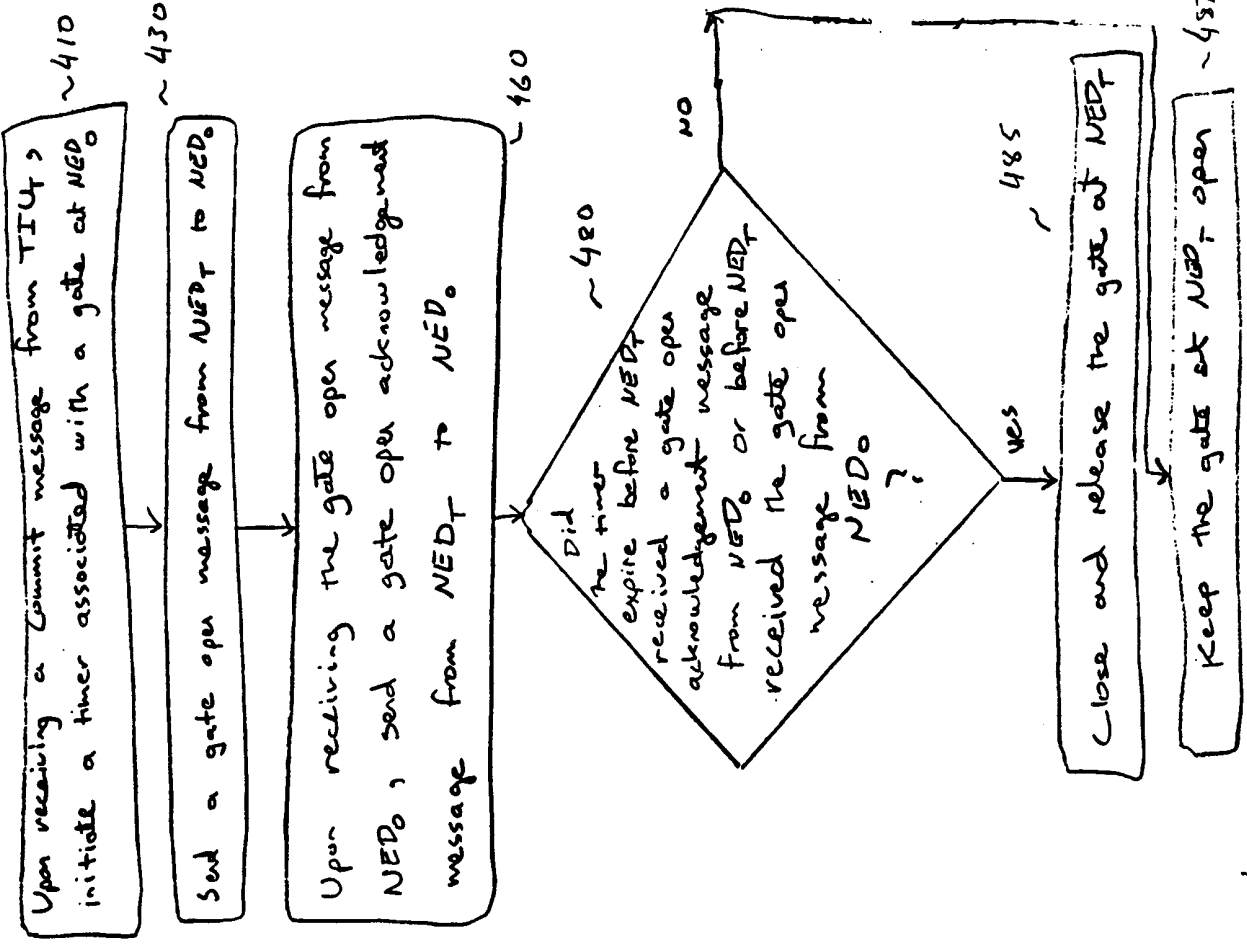 Upon receiving a Commit message from TIU_T,
initiate a timer associated with a gate at NED_O
~410
Send a gate open message from NED_T to NED_O
~430
Upon receiving the gate open message from
NED_O, send a gate open acknowledgement
message from NED_T to NED_O
~460
Did
the timer
expire before NED_T
received a gate open
acknowledgement message
from NED_O or before NED_T
received the gate open
message from
NED_O
?
~480
NO
Yes
~485
Close and release the gate at NED_T
Keep the gate at NED_T open